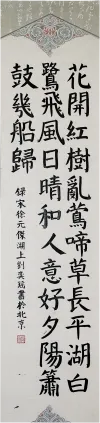 花開紅樹亂鶯啼草長平湖白
鷺飛風日晴和人意好夕陽簫
鼓幾船歸
錄宋徐元傑湖上劉英瑶書於北京